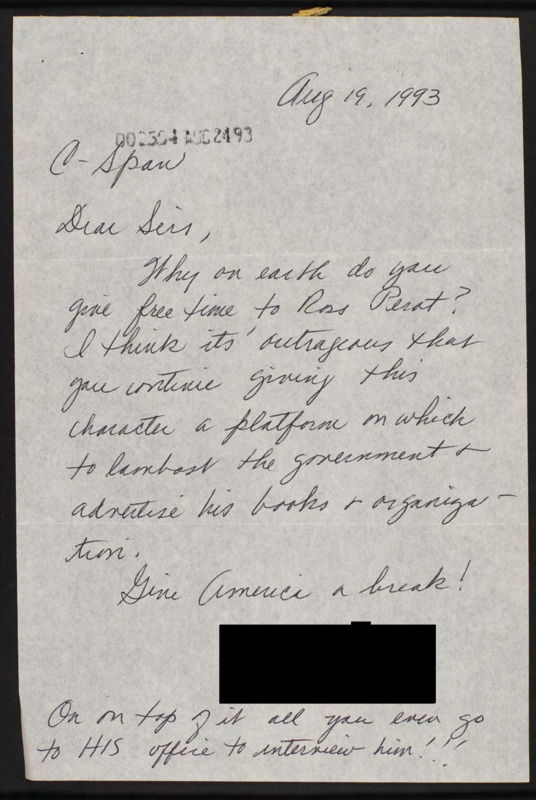 Aug 19, 1993
002554 AUG 24 93
C-Span
Dear Sirs,
Why on earth do you
give free time to Ross Perot?
I think its' outrageous that
you continue giving this
character a platform on which
to lambast the government &
advertise his books & organiza-
tion.
Give America a break!
On on top of it all you even go
to HIS office to interview him!!!